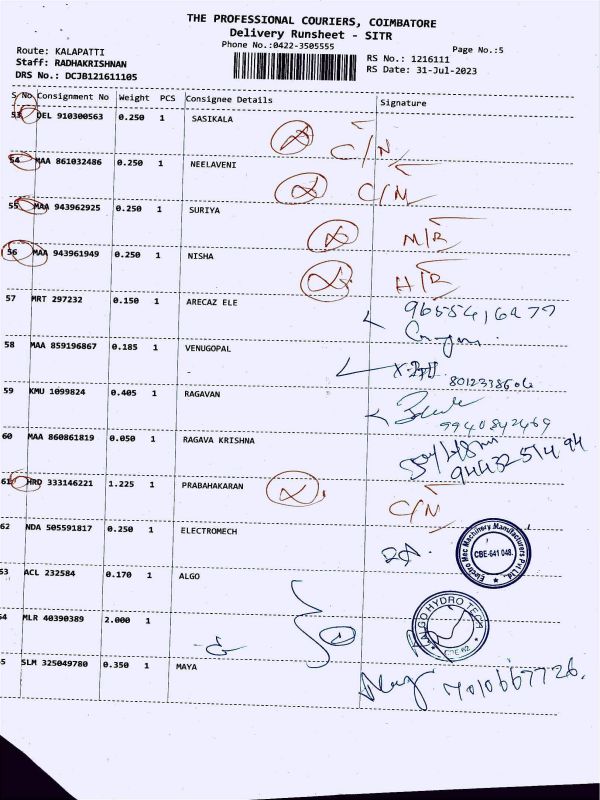 THE PROFESSIONAL COURIERS, COIMBATORE
Delivery Runsheet - SITR
Phone No.:0422-3505555
Page No.:5
Route: KALAPATTI
RS No.: 1216111
Staff: RADHAKRISHNAN
RS Date: 31-Jul-2023
DRS No.: DCJB121611105
S No Consignment No Weight PCS Consignee Details Signature
53 DEL 910300563 0.250 1 SASIKALA
C/N
54 MAA 861032486 0.250 1 NEELAVENI
C/N
55 MAA 943962925 0.250 1 SURIYA
N/R
56 MAA 943961949 0.250 1 NISHA
A/R
57 MRT 297232 0.150 1 ARECAZ ELE
58 MAA 859196867 0.185 1 VENUGOPAL
-
59 KMU 1099824 0.405 1 RAGAVAN
9940842469
60 MAA 860861819 0.050 1 RAGAVA KRISHNA
61 HRD 333146221 1.225 1 PRABAHAKARAN
C/N
62 NDA 505591817 0.250 1 ELECTROMECH
Electro Mec Machinery Manufacturers Pvt Ltd.,
CBE-641 048.
53 ACL 232584 0.170 1 ALGO
ALGO HYDRO TECH
54 MLR 40390389 2.000 1
5 SLM 325049780 0.350 1 MAYA
7010667726.